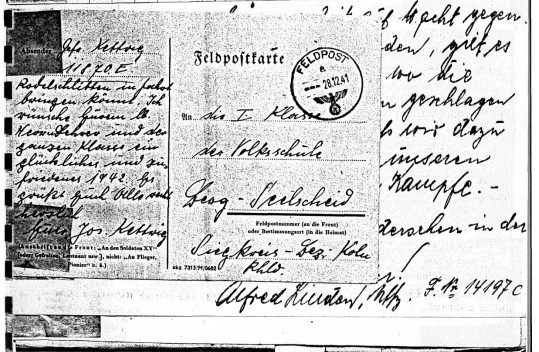 Absender
Jos. Kettwig
11870 E
Rodelschlitten in
bringen könnt. Ich
wünsche Euerm Lb.
und der
ganzen Klasse ein
glückliches und zu-
friedenes 1942. Es
grüßt Euch Alle recht
herzlich
Euer Jos. Kettwig
(Anschrift an die Front: „An den Soldaten XY“
[oder: Gefreiten, Leutnant usw.], nicht: „An Flieger,
Pionier“ o. ä.)
Feldpostkarte
FELDPOST
a
--- 28.12.41
An die I Klasse
der Volksschule
Seelscheid
Feldpostnummer (an die Front)
oder Bestimmungsort (in die Heimat)
Siegkreis - Bez. Köln
Rhld.
gegen
den, gilt es
wo die
geschlagen
wir dazu
unseren
Kampfe. -
in der
Alfred Linden, Uffz. F. Nr 14197 C